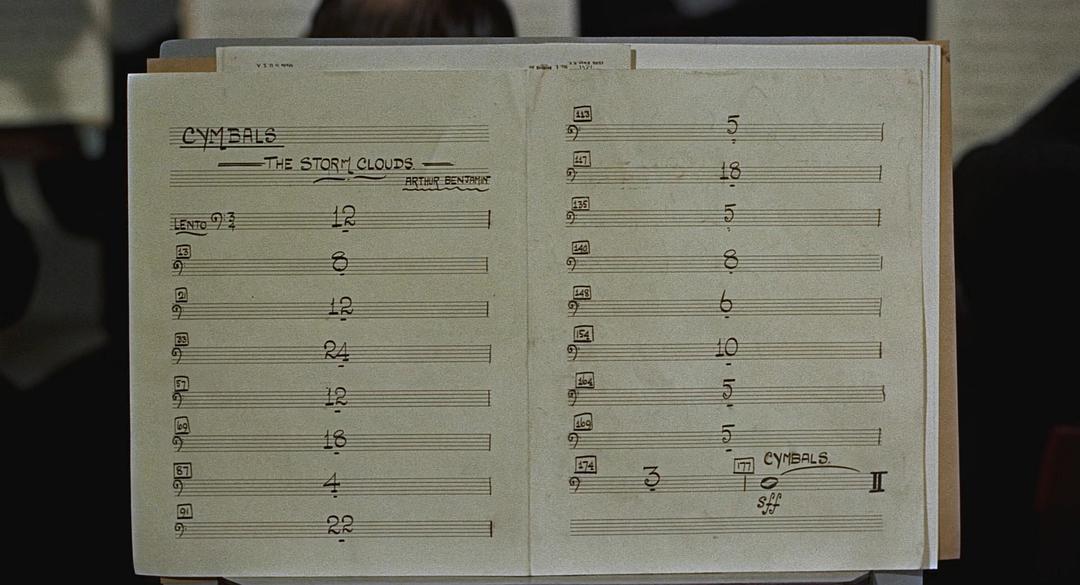 CYMBALS
THE STORM CLOUDS.
ARTHUR BENJAMIN
LENTO 3/4 12
13 8
21 12
33 24
57 12
69 18
87 4
91 22
113 5
117 18
135 5
140 8
148 6
154 10
164 5
169 5
174 3 177 CYMBALS.
sff